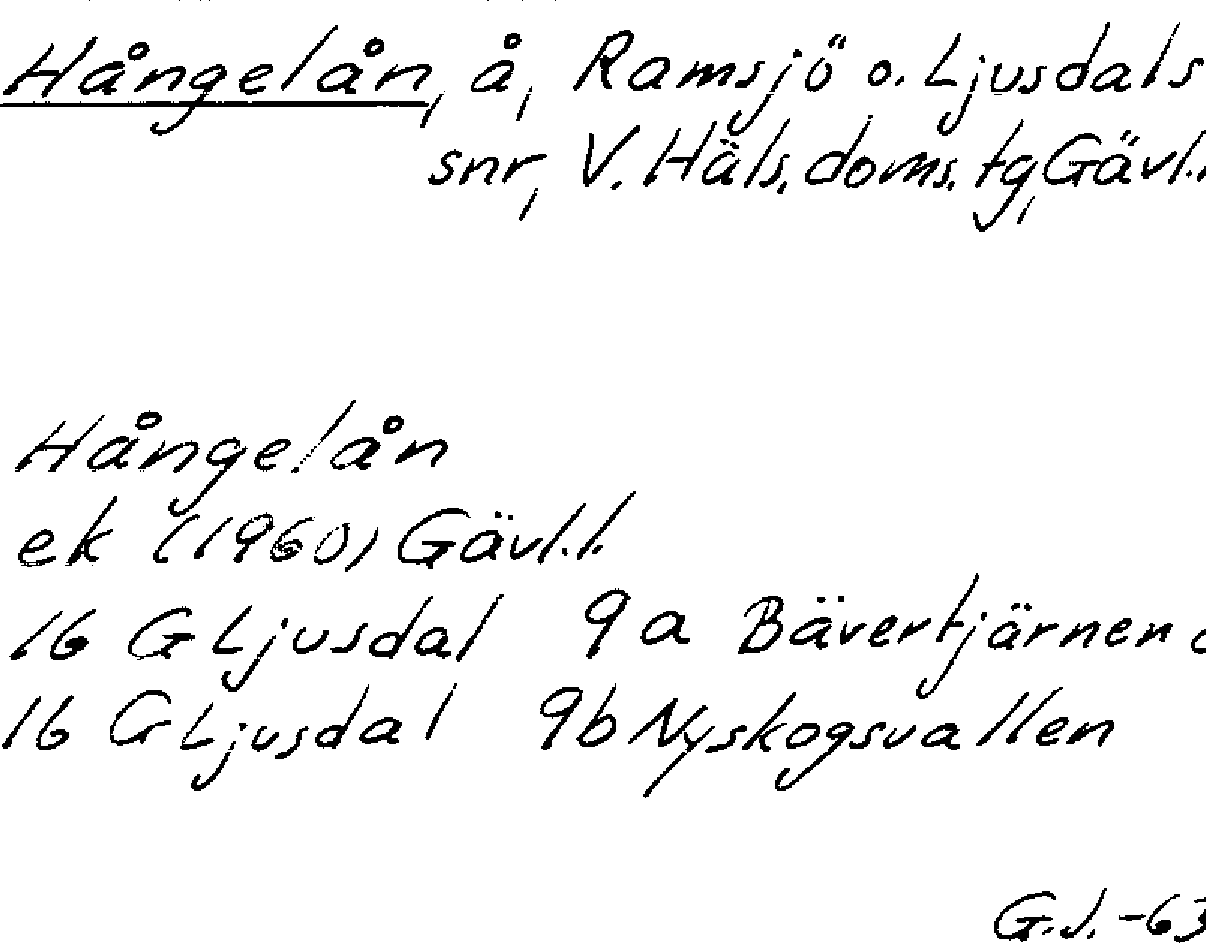 Hångelån, å, Ramsjö o. Ljusdals
snr, V. Häls. doms. tg, Gävl.l
Hångelån
ek (1960) Gävl.l.
16 G Ljusdal 9a Bävertjärnen
16 G Ljusdal 9b Nyskogsvallen
G.J. -63